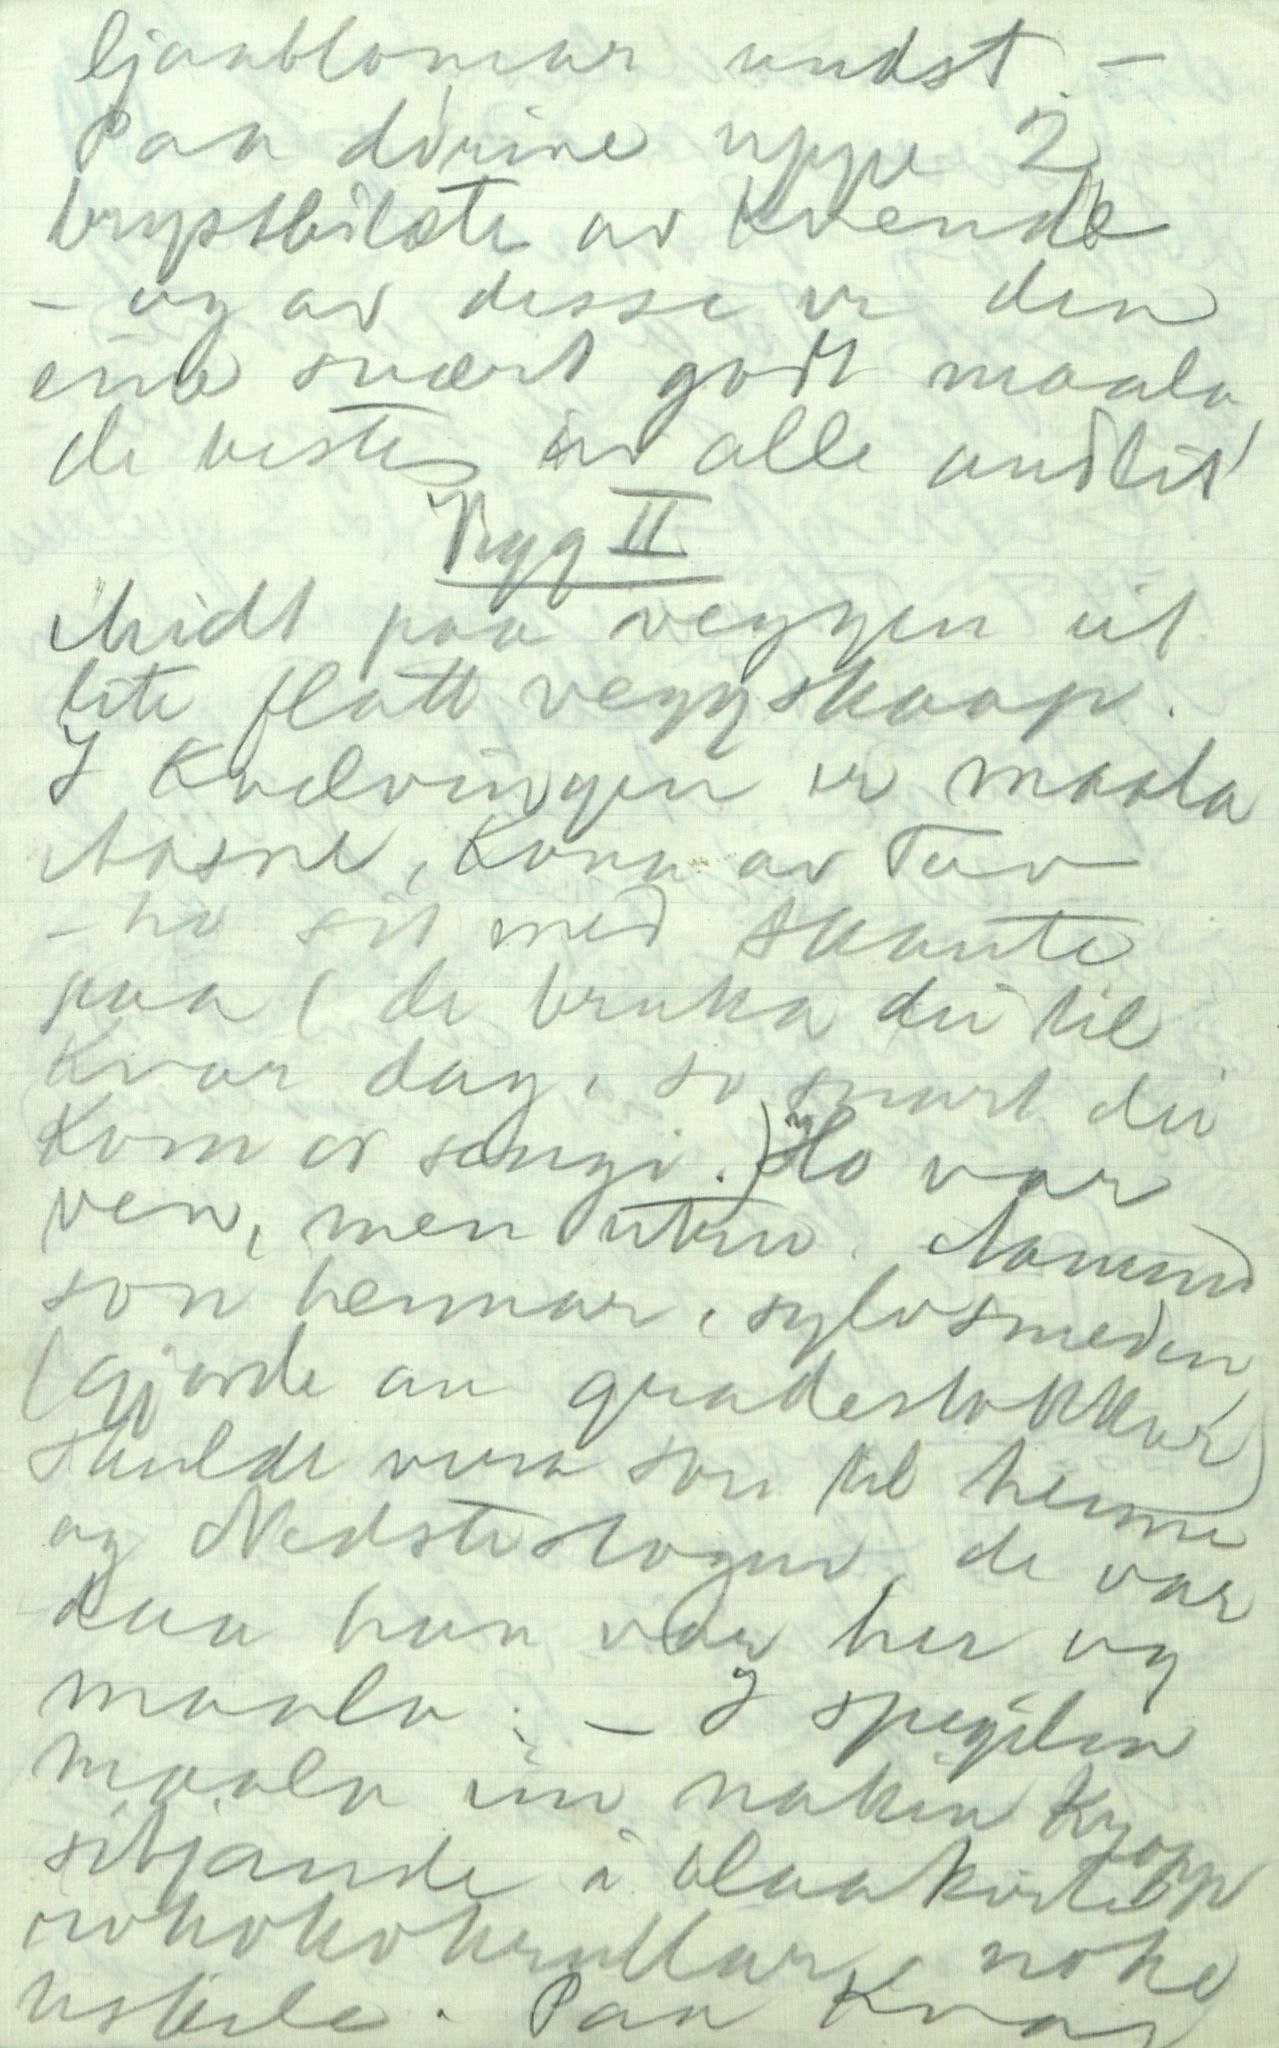 ljaablomar undst. –
Paa dörine uppe 2
brystbilæte av Kvende
– og av desse er den
eine svært godt maala
de beste av alle andlit
Bygg II
Midt paa veggen eit
lite flatt veggskaap.
I Kvelvingen er maala
Aasne, Kona av Tuv
– ho sit med skaute
paa (de bruka dei til
Kvar dag, so snart dei
Kom or sengi.) Ho var
ven, men utru. Aamund
son hennar, sylvsmeden,
(gjorde au gradestokkar)
skulde vera son til henne
og Nedstestogun, de var
daa han var her og
maala. – I spegilen
maala ein naken Kropp
sitjande i blaa
rokokokrullar, noke
uskile. Paa Kvar